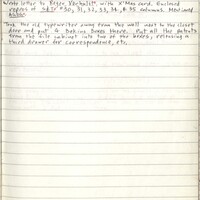 Wrote letter to Roger, with X'mas card. Enclosed
copies of #30, 31, 32, 33, 34, & 35 columns. Mailed
Took the old typewriter away from the wall next to the closet
door and put 4 Baking Boxes there. Put all the patents
from the file cabinet into two of the boxes, releasing a
third drawer for correspondence, etc.